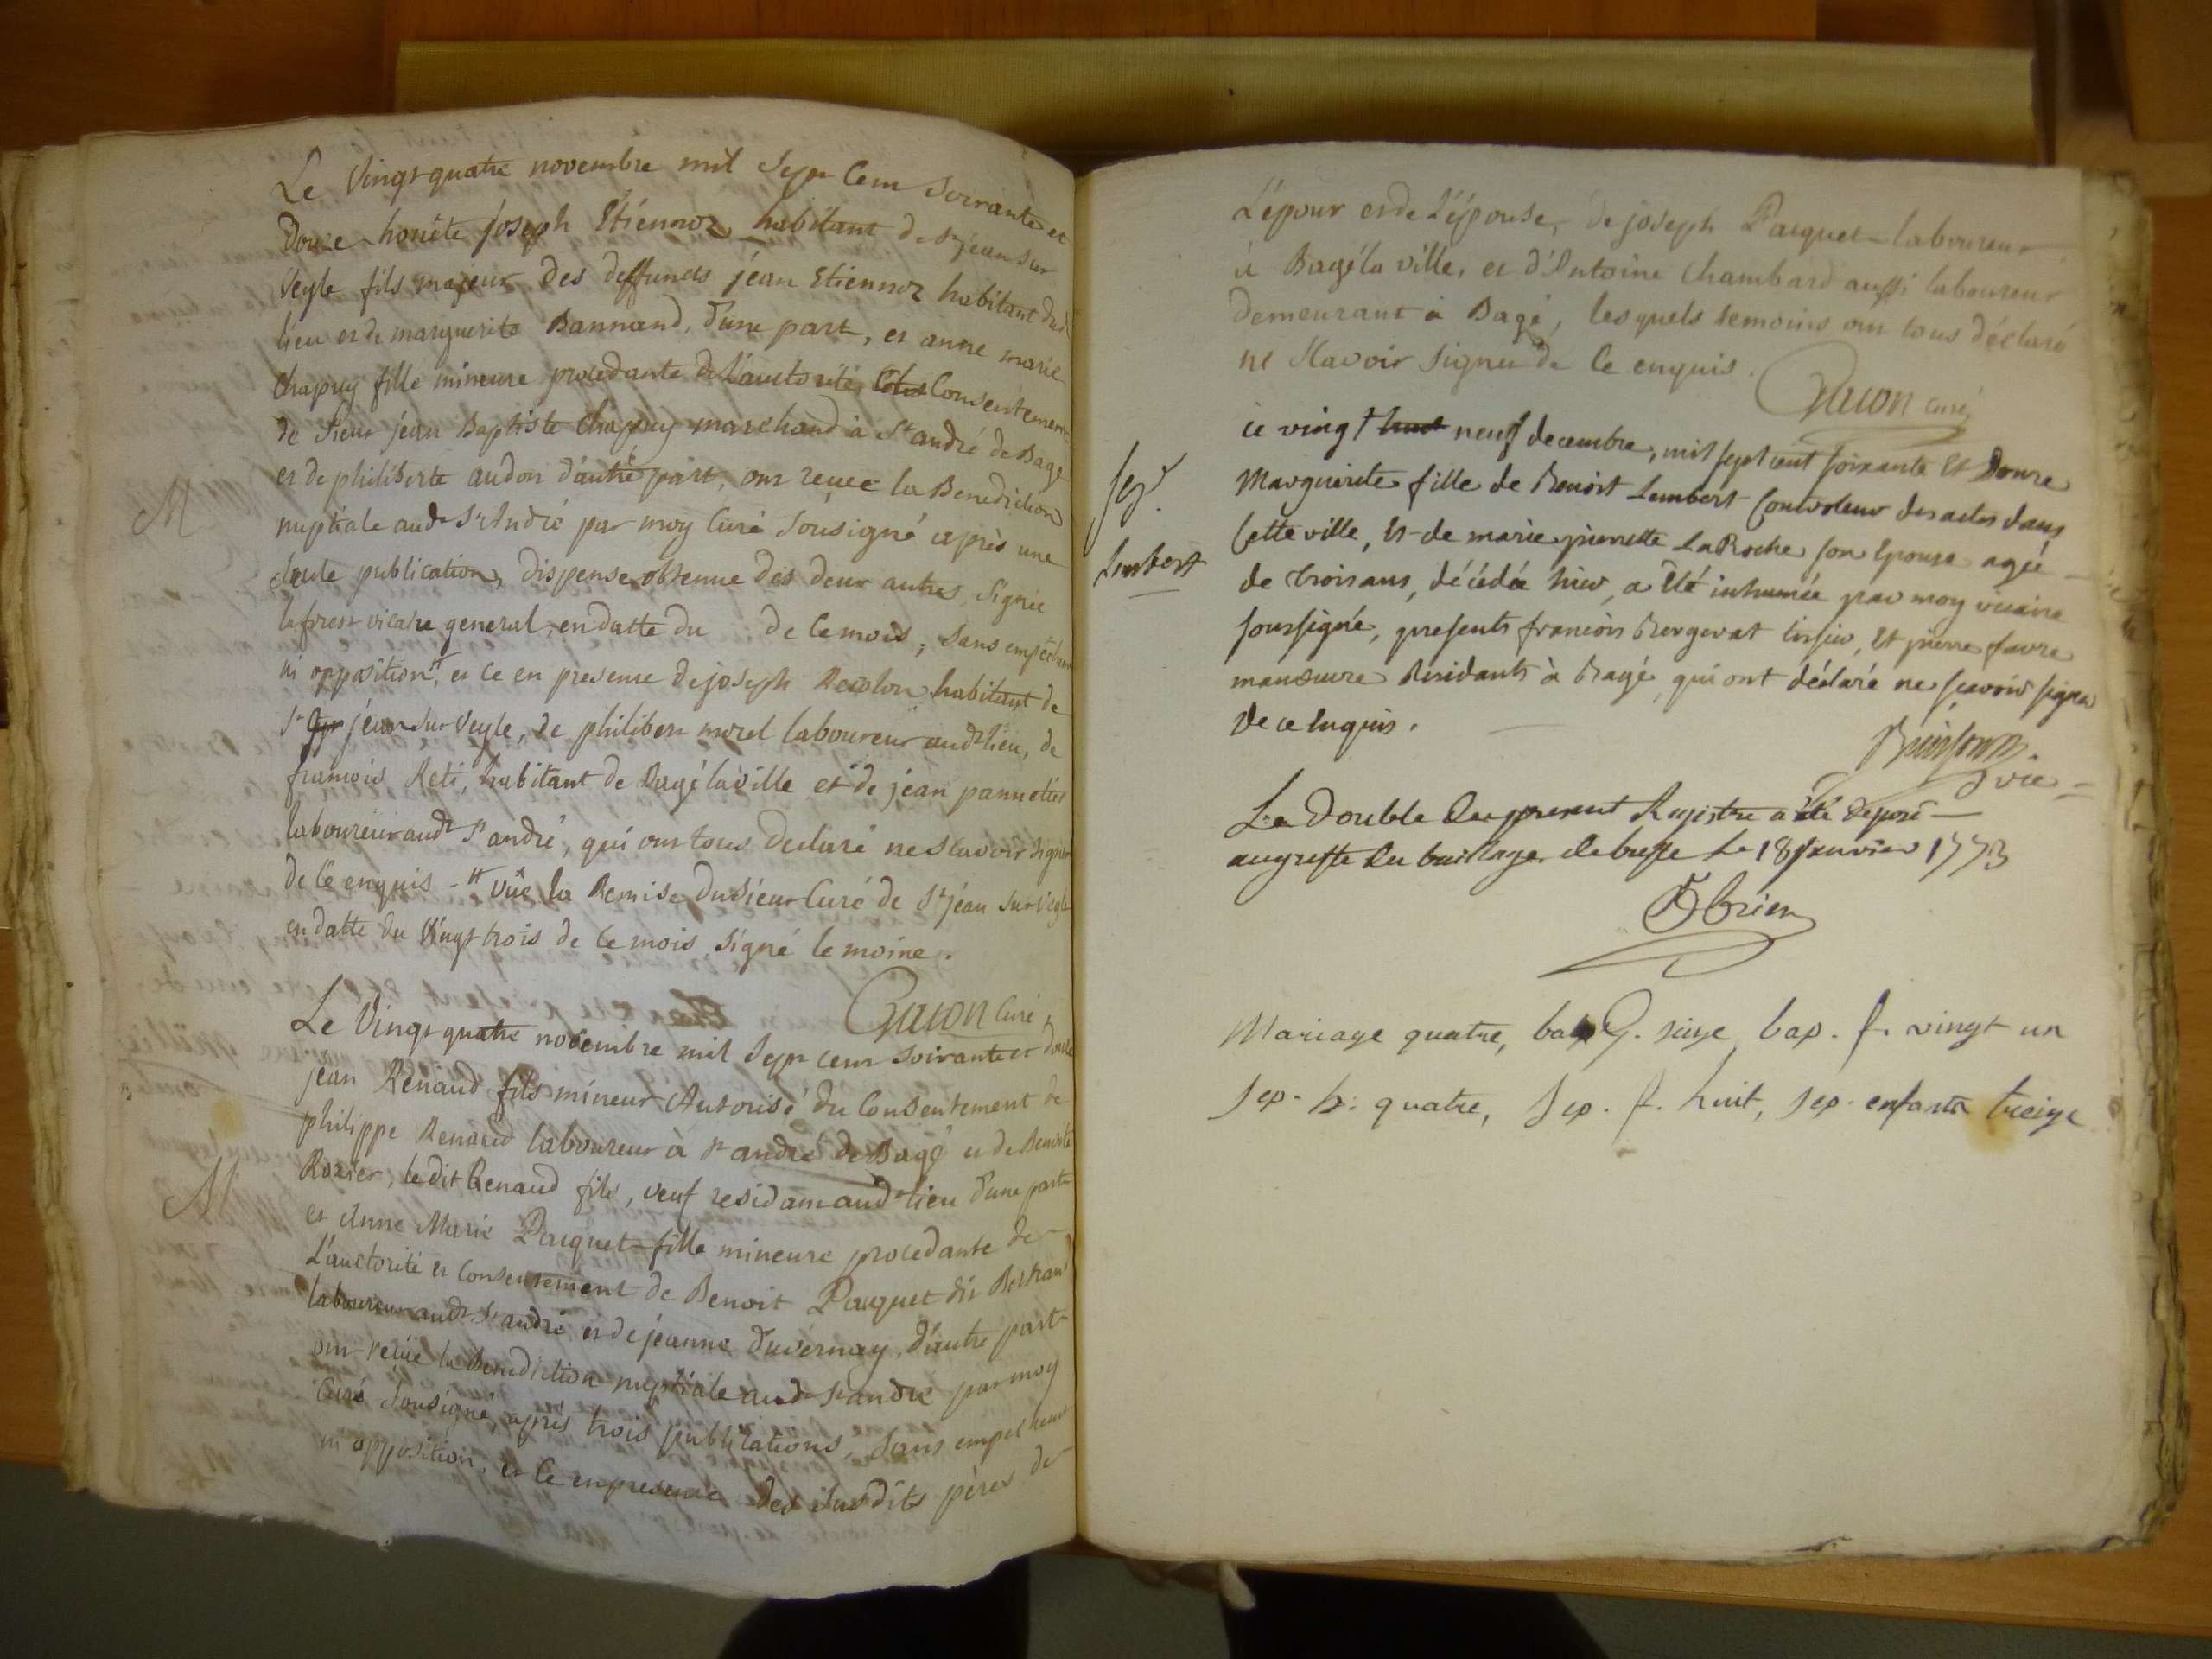 Le Vingt quatre novembre mil Sept Cent Soixante et
Douze honête joseph Etiennoz habitant de St jean Sur
Veyle fils majeur des deffunds jean Etiennoz habitant dud
lieu et de marguerite Bannand, d'une part, et anne marie
Chapuy fille mineure procedante de l'auctorité, Consentement
de Sieur jean Baptiste Chapuy marchand à St andré de Bagé
et de philiberte audon d'autre part, ont reçue la Benediction
M
nuptiale audt St André par moy Curé Sousigné après une
Seule publication, dispense obtenue des deux autres, Signée
laforest vicaire general, en datte du de Ce mois, Sans empêchem
ni opposition, et Ce en presence de joseph Revolon habitant de
St jean Sur Veyle, de philibert morel laboureur audt lieu, de
francois Reti, habitant de Bagé la ville et de jean pannetier
laboureur audt St andré, qui ont tous declaré ne Scavoir Signer
de Ce enquis - vûe la Remise du Sieur Curé de St jean Sur Veyle
en datte du Vingt trois de Ce mois, Signé le moine.
Gacon Curé
Le Vingt quatre novembre mil Sept cent Soixante et douze
jean Renaud fils mineur Autorisé du Consentement de
philippe Renaud laboureur à St andré de Bagé et de Benoite
Rozier, le dit Renaud fils, veuf residant audt lieu d'une part
M
et Anne Marie Paquet fille mineure procedante de
L'auctorité et Consentement de Benoit Pauquet dit Bertrand
laboureur audt St andré et de jeanne Duvernay, d'autre part
ont reçüe la Benediction nuptiale audt St andré par moy
Curé Sousigné, après trois publications, Sans empechement
ni opposition, et Ce en presence des Susdits pères de
L'époux et de L'épouse, de joseph Pacquet laboureur
à Bagé la ville, et d'Antoine Chambard aussi laboureur
demeurant à Bagé, les quels temoins ont tous déclaré
ne Scavoir Signer de Ce enquis.
Gacon curé
ce vingt huit neuf decembre, mil sept cent soixante Et Douze
Sep.
Marguerite fille de Benoist Lambert Controleur des actes dans
Cette ville, Et de marie pierrette LaRoche son Epouse agée
Lambert
de trois ans, décédée hier, a Eté inhumée par moy vicaire
soussigné, presents francois Bergerat tissier, Et pierre favre
manœuvre Residants à Bagé, qui ont déclaré ne scavoir signer
de ce Enquis.
Buisson
vic
Le Double du present Registre a été deposé
au greffe du bailliage de bresse le 18 janvier 1773
Obrien
Mariage quatre, bap. G. seize bap. f. vingt un
Sep. h. quatre, Sep. f. huit, Sep. enfants treize